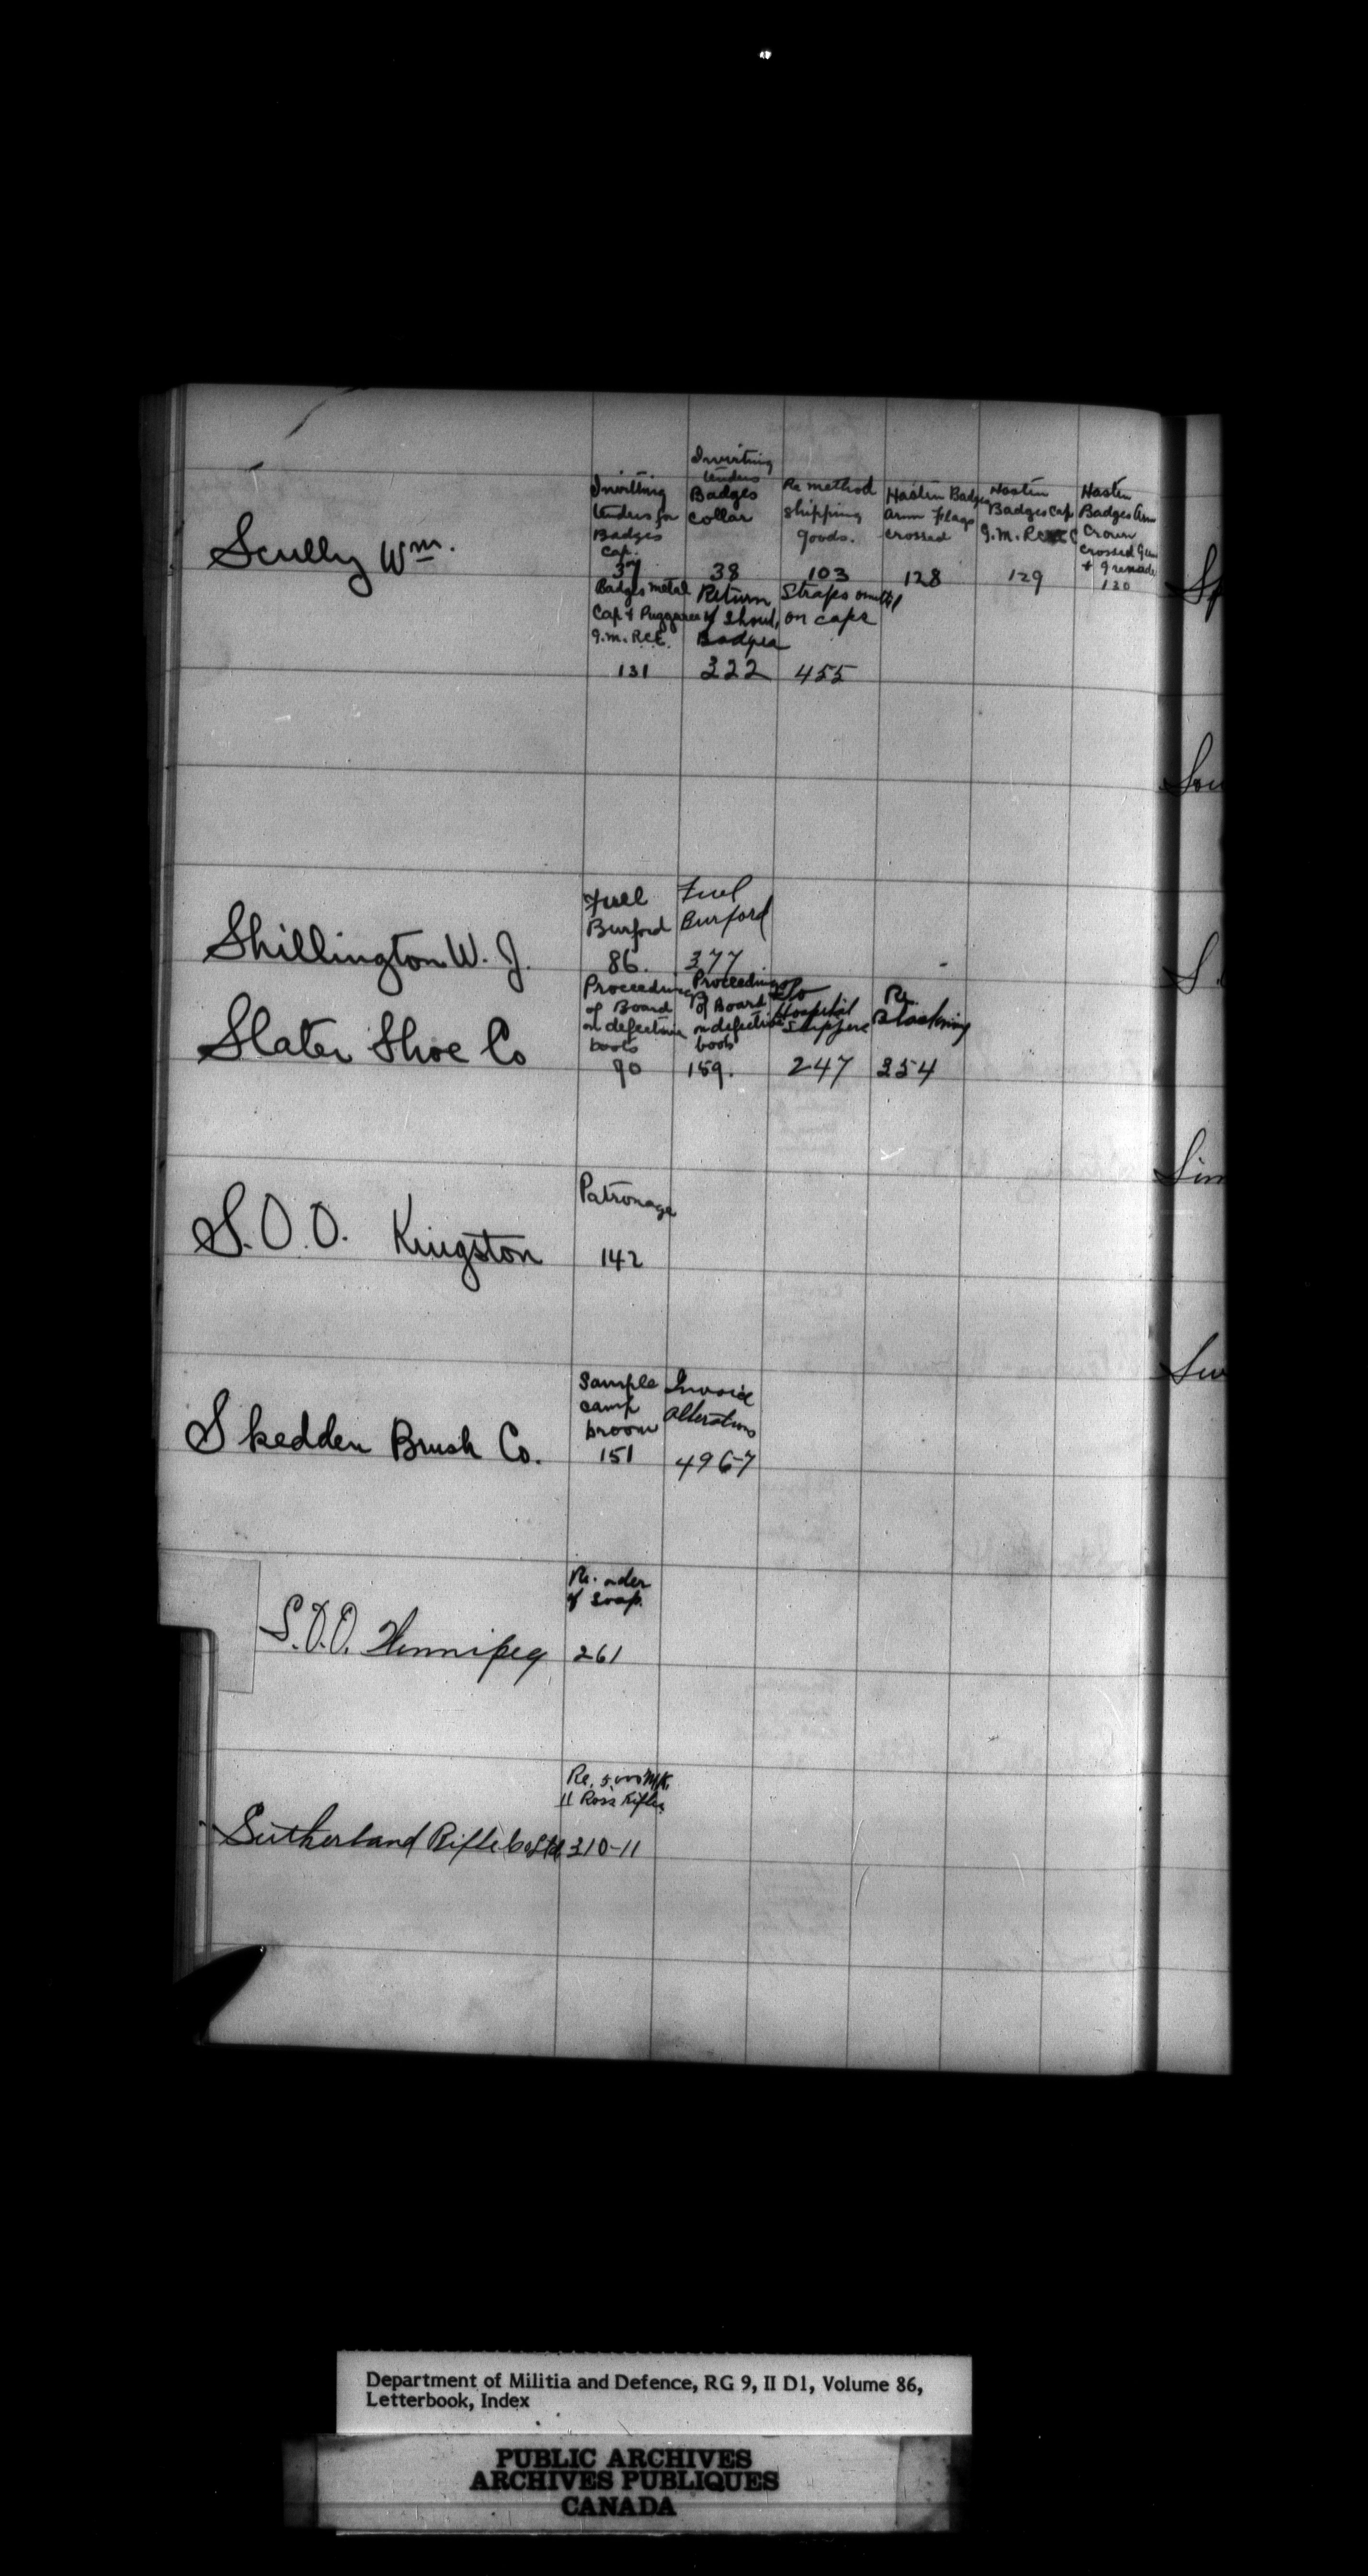 Scully Wm.
Inviting tenders for Badges cap. 37
Inviting tenders Badges collar 38
Re method shipping goods. 103
Hasten Badges arm Flags crossed 128
Hasten Badges Cap G.M. 129
Hasten Badges arm Crown crossed Guns & Grenade 130
Badges metal Cap & Puggaree G.M. RCE. 131
Return of Should. Badges 322
Straps omitted on caps 455
Shillington W. J.
Fuel Burford 86.
Fuel Burford 377
Slater Shoe Co
Proceedings of Board on defective boots 90
Proceedings of Board on defective boots 159.
Hospital Slippers 247
Re. Blacking 354
S.O.O. Kingston
Patronage
142
Skedden Brush Co.
Sample camp broom 151
Invoice alterations 496-7
S.O.O. Winnipeg
Re. order of soap. 261
Sutherland Rifle Co Ltd.
Re. 5,000 MK. II Ross Rifles 310-11
Sp
Sou
S
Sim
Department of Militia and Defence, RG 9, II D1, Volume 86,
Letterbook, Index
PUBLIC ARCHIVES
ARCHIVES PUBLIQUES
CANADA